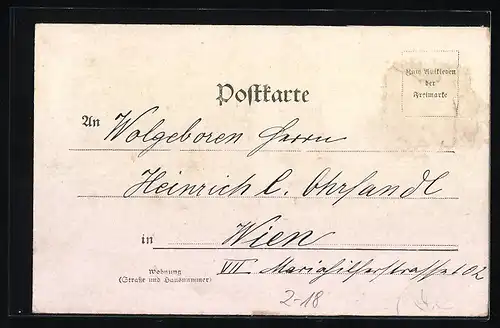 Zum Aufkleben
der
Freimarke
Postkarte
An Wolgeboren Herrn
Heinrich C. Ohrfandl
in Wien
Wohnung
(Straße und Hausnummer)
VII Mariahilferstrasse 102
2-18